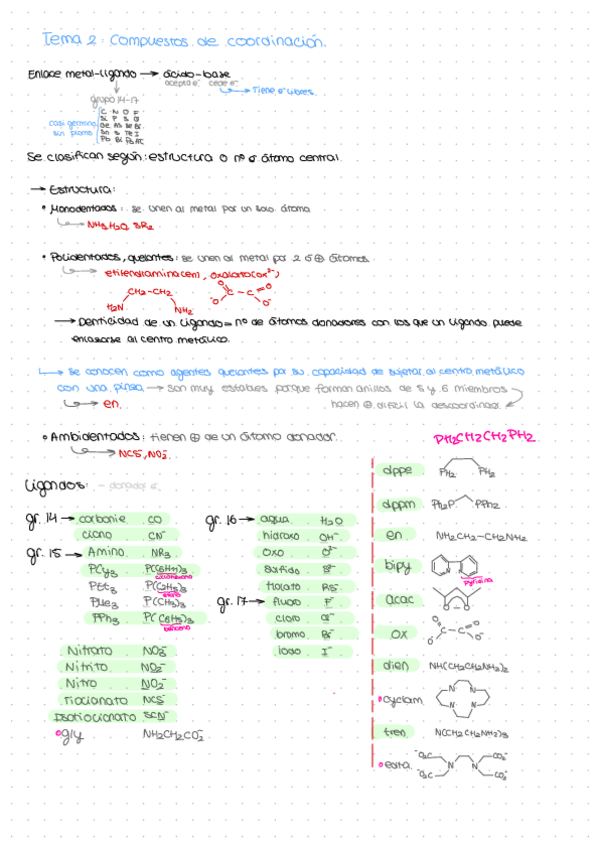 Tema 2: Compuestos de coordinación.
Enlace metal-ligando → ácido-base
acepta e⁻ cede e⁻
→ Tiene e⁻ libres.
grupo 14-17
C N O F
Si P S Cl
Ge As Se Br
Sn Sb Te I
Pb Bi Po At
Se clasifican según: estructura o nº e⁻ átomo central
→ Estructura:
• Monodentados: se unen al metal por un solo átomo
NH3, H2O, SR2
• Polidentados, quelantes: se unen al metal por 2 ó ⊕ átomos.
etilendiamina (en), oxalato (ox²⁻)
CH2-CH2
H2N NH2
O O
C-C
⁻O O⁻
→ Denticidad de un ligando = nº de átomos donadores con los que un ligando puede
enlazarse al centro metálico.
→ se conocen como agentes quelantes por su capacidad de sujetar al centro metálico
con una pinza → son muy estables porque forman anillos de 5 y 6 miembros
→ en. hacen ⊕ difícil la descoordinar.
• Ambidentados: tienen ⊕ de un átomo donador.
NCS⁻, NO2⁻.
PH2CH2CH2PH2
Ligandos: - donador e⁻
gr. 14 → carbonie CO
ciano CN⁻
gr. 15 → Amino NR3
PCy3 P(C6H11)3
ciclohexano
PEt3 P(C2H5)3
PMe3 P(CH3)3
PPh3 P(C6H5)3
benceno
Nitrato NO3⁻
Nitrito NO2⁻
Nitro NO2⁻
Tiocianato NCS⁻
Isotiocianato SCN⁻
•gly NH2CH2CO2⁻
gr. 16 → aqua H2O
hidroxo OH⁻
oxo O²⁻
sulfido S²⁻
tiolato RS⁻
gr. 17 → fluoro F⁻
cloro Cl⁻
bromo Br⁻
iodo I⁻
dppe PH2 PH2
dppm Ph2P PPh2
en NH2CH2-CH2NH2
bipy
Pyridina
acac O O
ox O C-C O ⁻O O⁻
dien NH(CH2CH2NH2)2
•cyclam N N N N
tren N(CH2CH2NH2)3
•edta ⁻O2C N N CO2⁻
⁻O2C CO2⁻